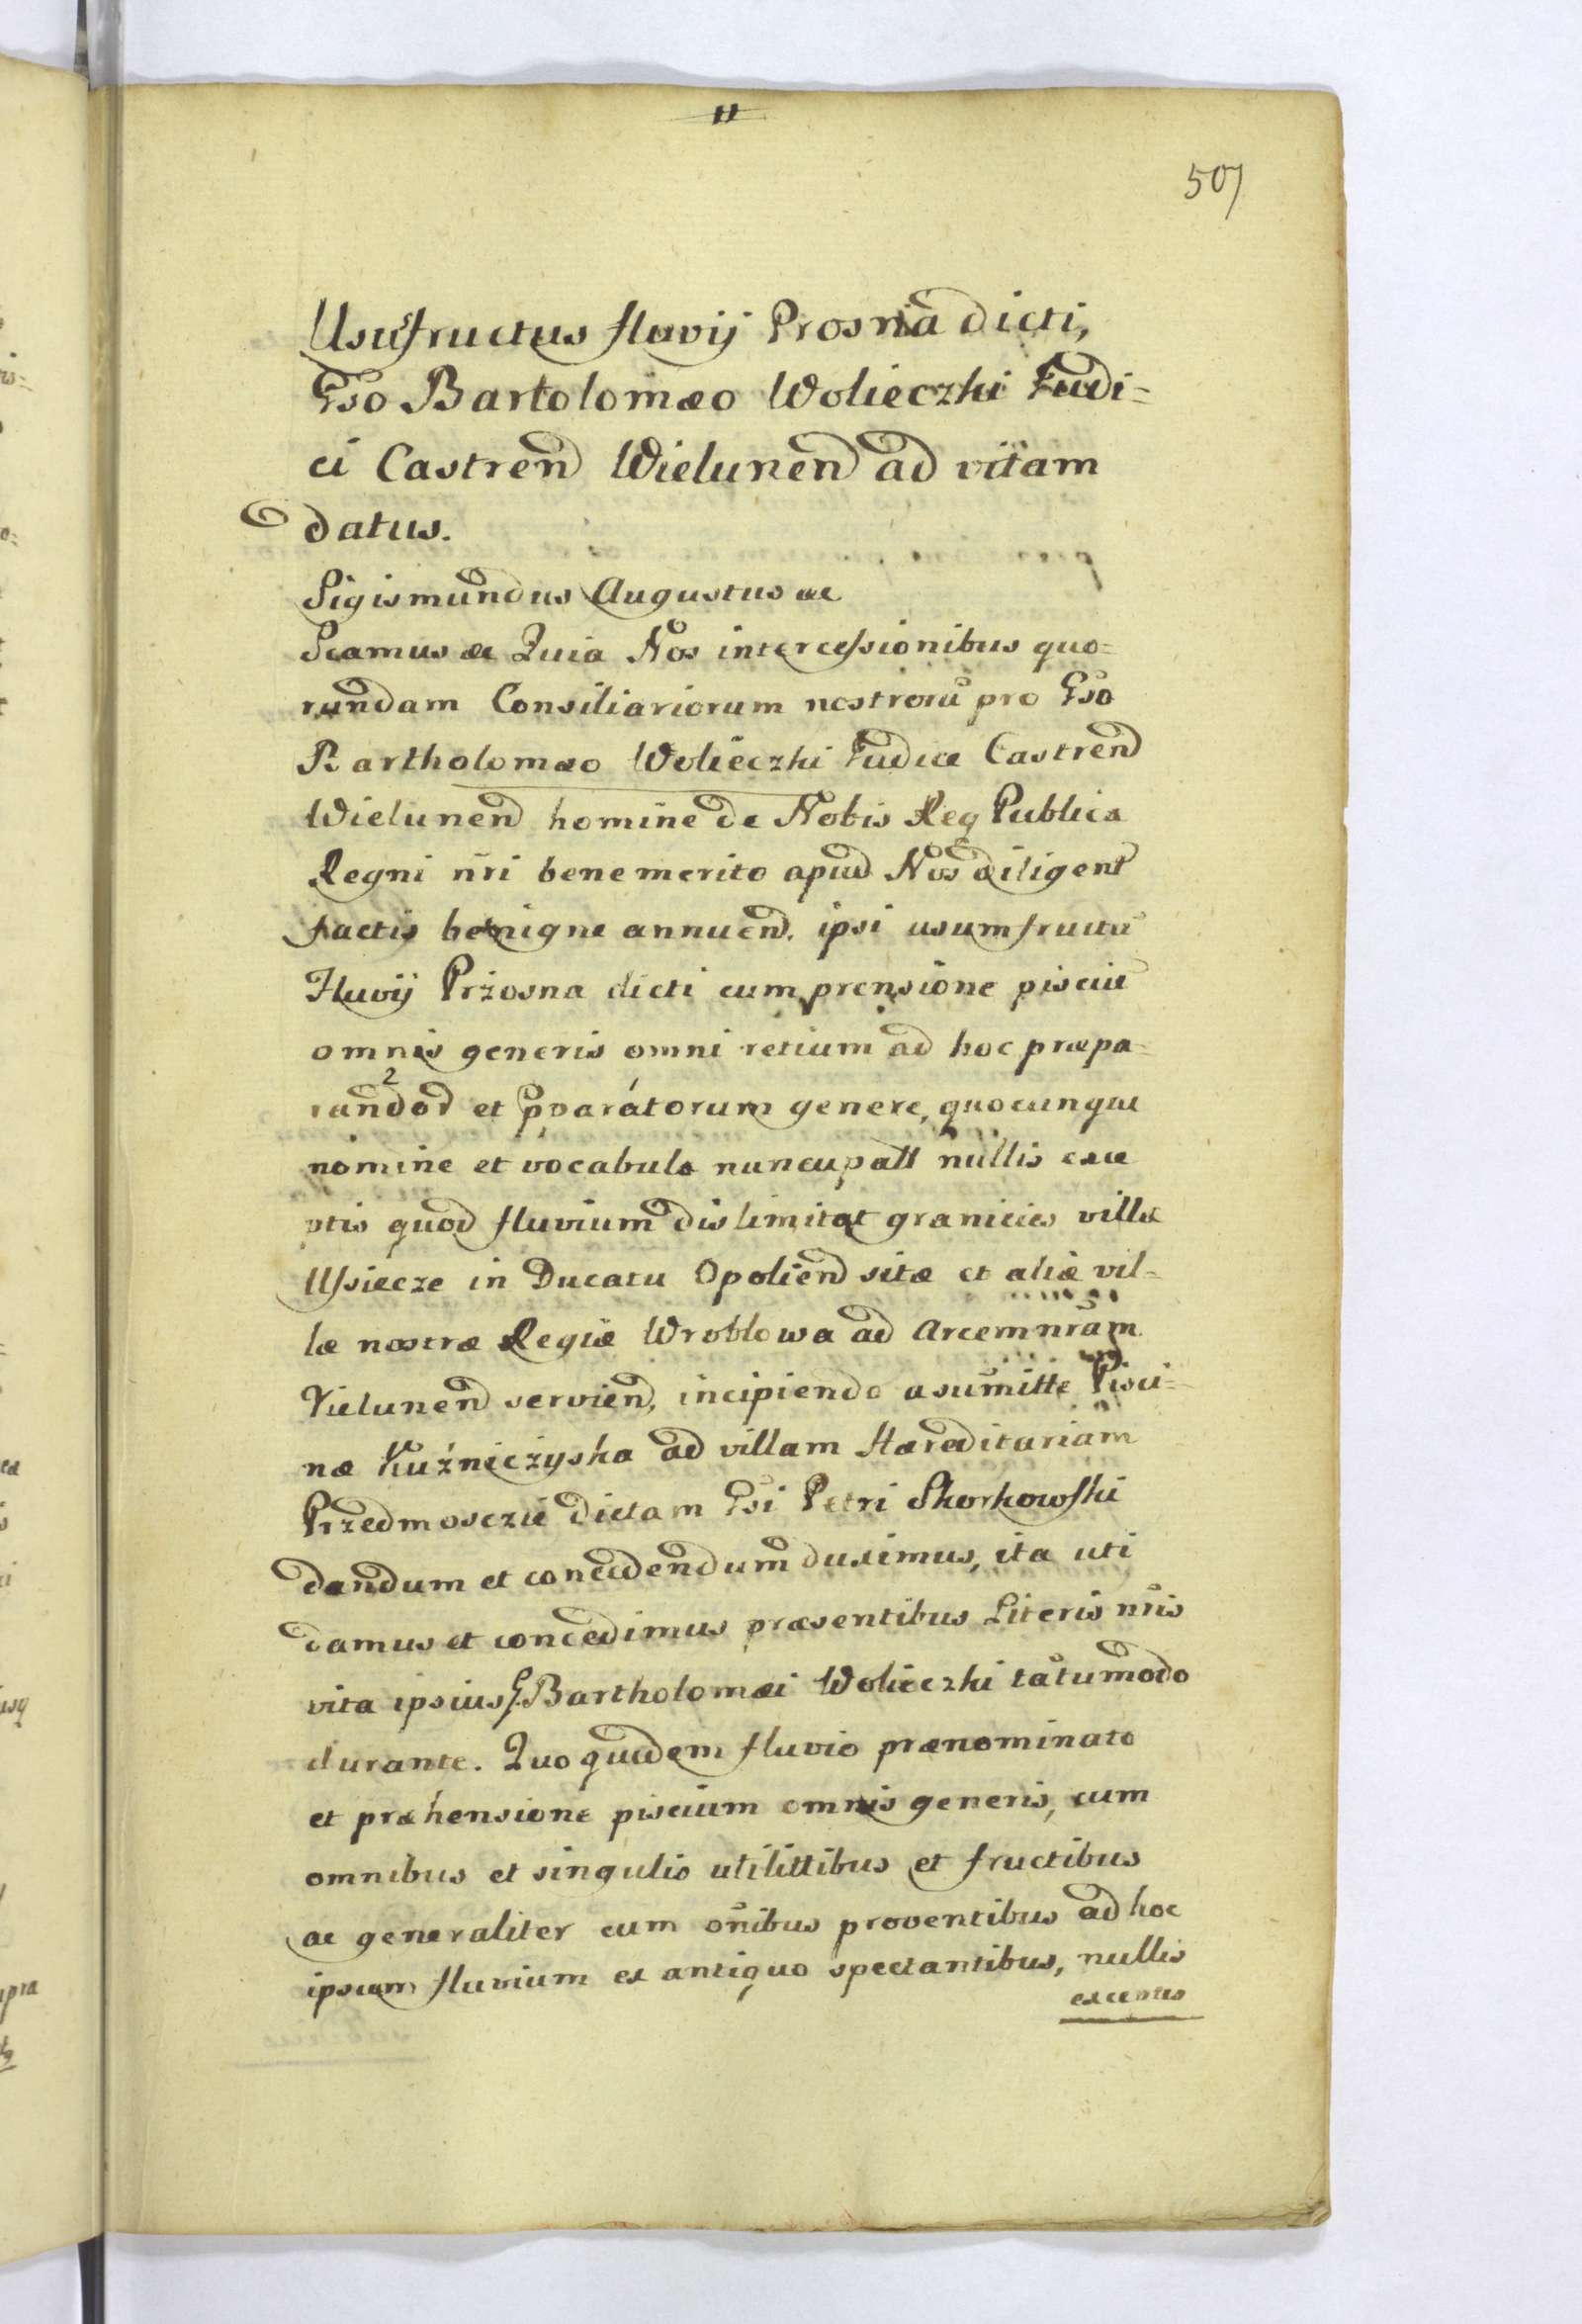 11
507
Ususfructus fluvij Prosna dicti,
Gso Bartolomæo Wolieczki Judi=
ci Castren Wielunen ad vitam
datus.
Sigismundus Augustus ac
Scamus ac Quia Nos intercessionibus quo=
rundam Consiliariorum nostrorū pro Gso
Bartholomæo Wolieczki Judice Castren
Wielunen homine de Nobis Reg Publica
Regni nri bene merito apud Nos diligent
factis benigne annuen. ipsi usumfructū
Fluvij Przosna dicti cum prensione pisciū
omnis generis omni retium ad hoc præpa=
randor et pparatorum genere, quocunque
nomine et vocabulo nuncupatt nullis exce
ptis quod fluvium dislimitat granicies villæ
Ussiecze in Ducatu Opolien sitæ et aliæ vil=
læ nostræ Regiæ Wroblowa ad Arcem nram
Vielunen servien, incipiendo a sumitte Pisci=
næ Kuźniczyska ad villam Hæreditariam
Przedmosczie dictam Gsi Petri Skorkowski
dandum et concedendum duximus, ita uti
damus et concedimus præsentibus Literis nris
vita ipsius G. Bartholomæi Wolieczki tātumodo
durante. Quo quidem fluvio prænominato
et præhensione piscium omnis generis, cum
omnibus et singulis utilittibus et fructibus
ac generaliter cum onibus proventibus ad hoc
ipsum fluvium ex antiquo spectantibus, nullis
exceptis